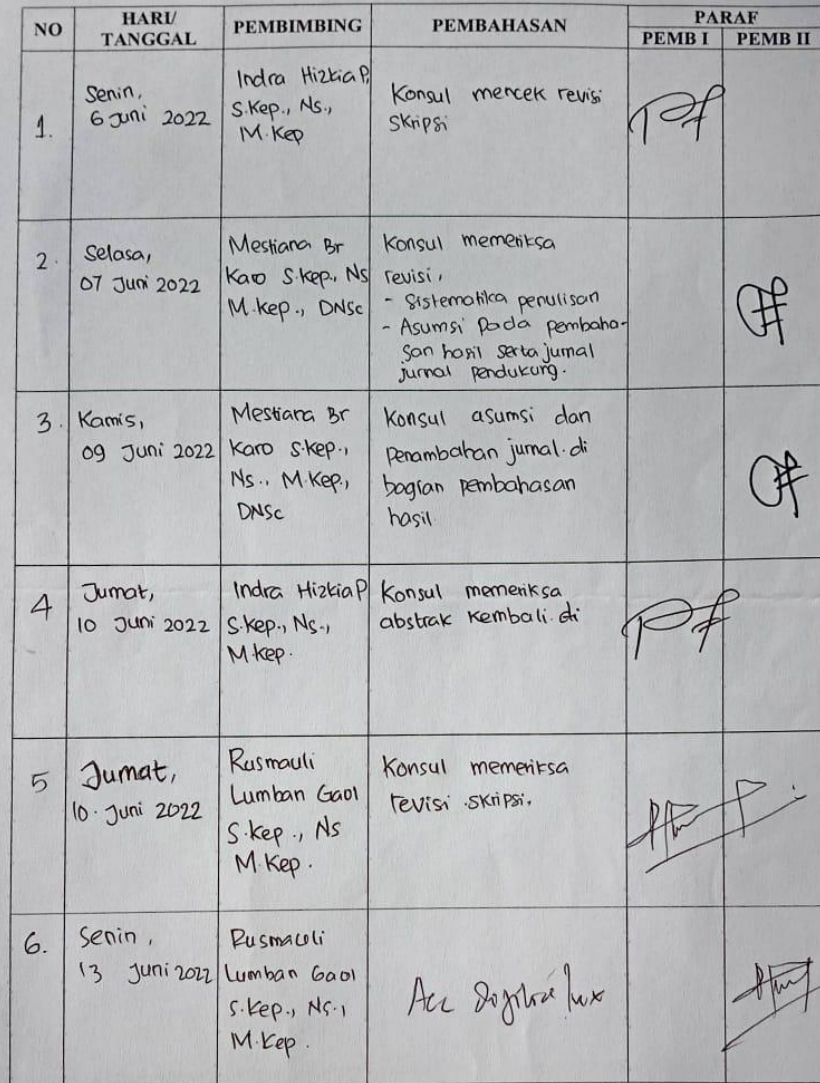 NO HARI/ TANGGAL PEMBIMBING PEMBAHASAN PARAF
PEMB I PEMB II
1.
Senin,
6 Juni 2022
Indra Hizkia P,
S.Kep., Ns.,
M.Kep
Konsul mencek revisi
Skripsi
2.
Selasa,
07 Juni 2022
Mestiana Br
Karo S.kep., Ns
M.kep., DNSc
Konsul memeriksa
revisi,
- Sistematika penulisan
- Asumsi pada pembaha-
san hasil serta jurnal
jurnal pendukung.
3.
Kamis,
09 Juni 2022
Mestiana Br
Karo S.kep.,
Ns., M.Kep.,
DNSc
Konsul asumsi dan
penambahan jurnal di
bagian pembahasan
hasil
4
Jumat,
10 Juni 2022
Indra Hizkia P
S.kep., Ns.,
M.kep.
Konsul memeriksa
abstrak kembali di
5
Jumat,
10. Juni 2022
Rusmauli
Lumban Gaol
S.kep., Ns
M.Kep.
Konsul memeriksa
revisi skripsi.
6.
Senin,
13 Juni 2022
Rusmauli
Lumban Gaol
S.kep., Ns.,
M.Kep.
Acc